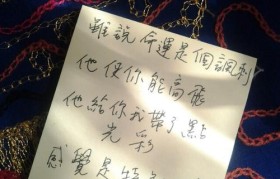 雖說命運是個諷刺
他使你能高飛
他給你我帶了點
光彩
感覺是